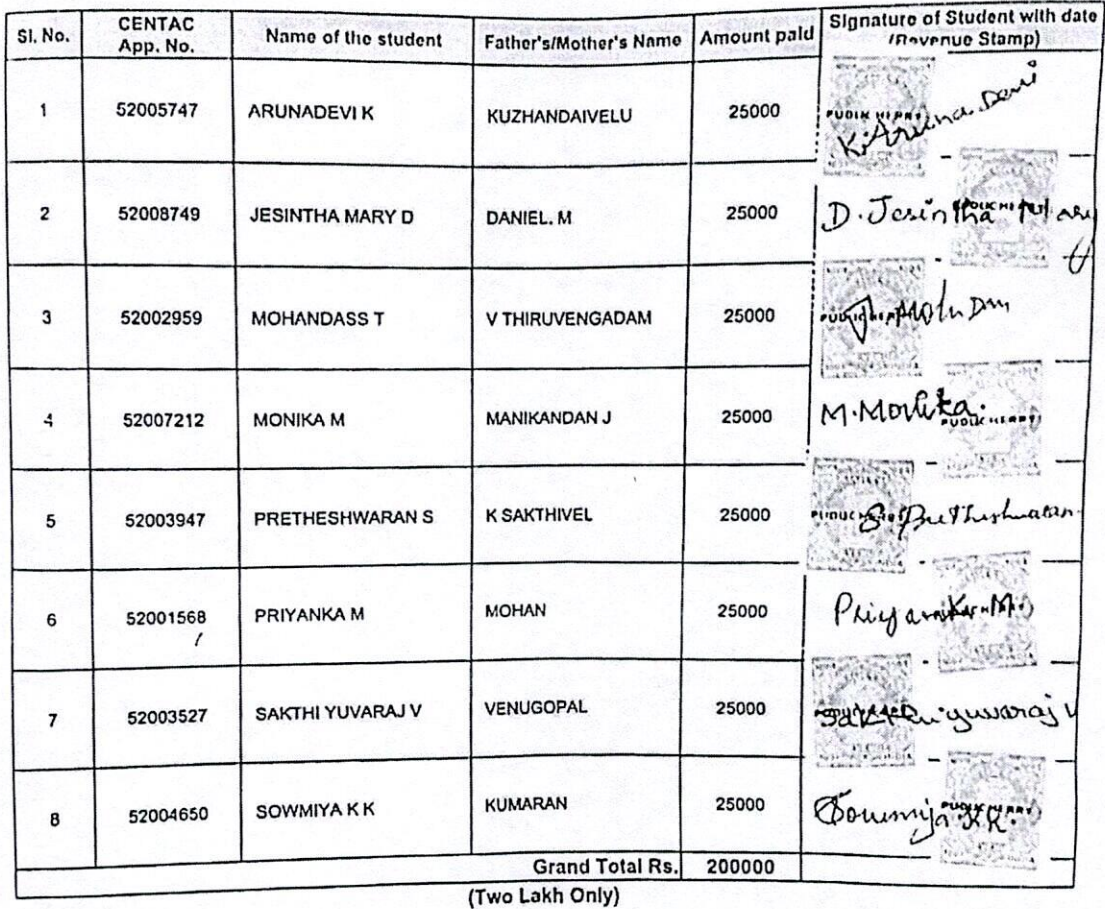 Sl. No. CENTAC App. No. Name of the student Father's/Mother's Name Amount paid Signature of Student with date (Revenue Stamp)
1 52005747 ARUNADEVI K KUZHANDAIVELU 25000 K. Aruna Devi
2 52008749 JESINTHA MARY D DANIEL. M 25000 D. Jesintha Mary
3 52002959 MOHANDASS T V THIRUVENGADAM 25000
4 52007212 MONIKA M MANIKANDAN J 25000 M. Monika.
5 52003947 PRETHESHWARAN S K SAKTHIVEL 25000
6 52001568 PRIYANKA M MOHAN 25000 Priyanka. M.
7 52003527 SAKTHI YUVARAJ V VENUGOPAL 25000 Sakthi yuvaraj V
8 52004650 SOWMIYA K K KUMARAN 25000 Sowmiya. K.K.
Grand Total Rs. 200000
(Two Lakh Only)